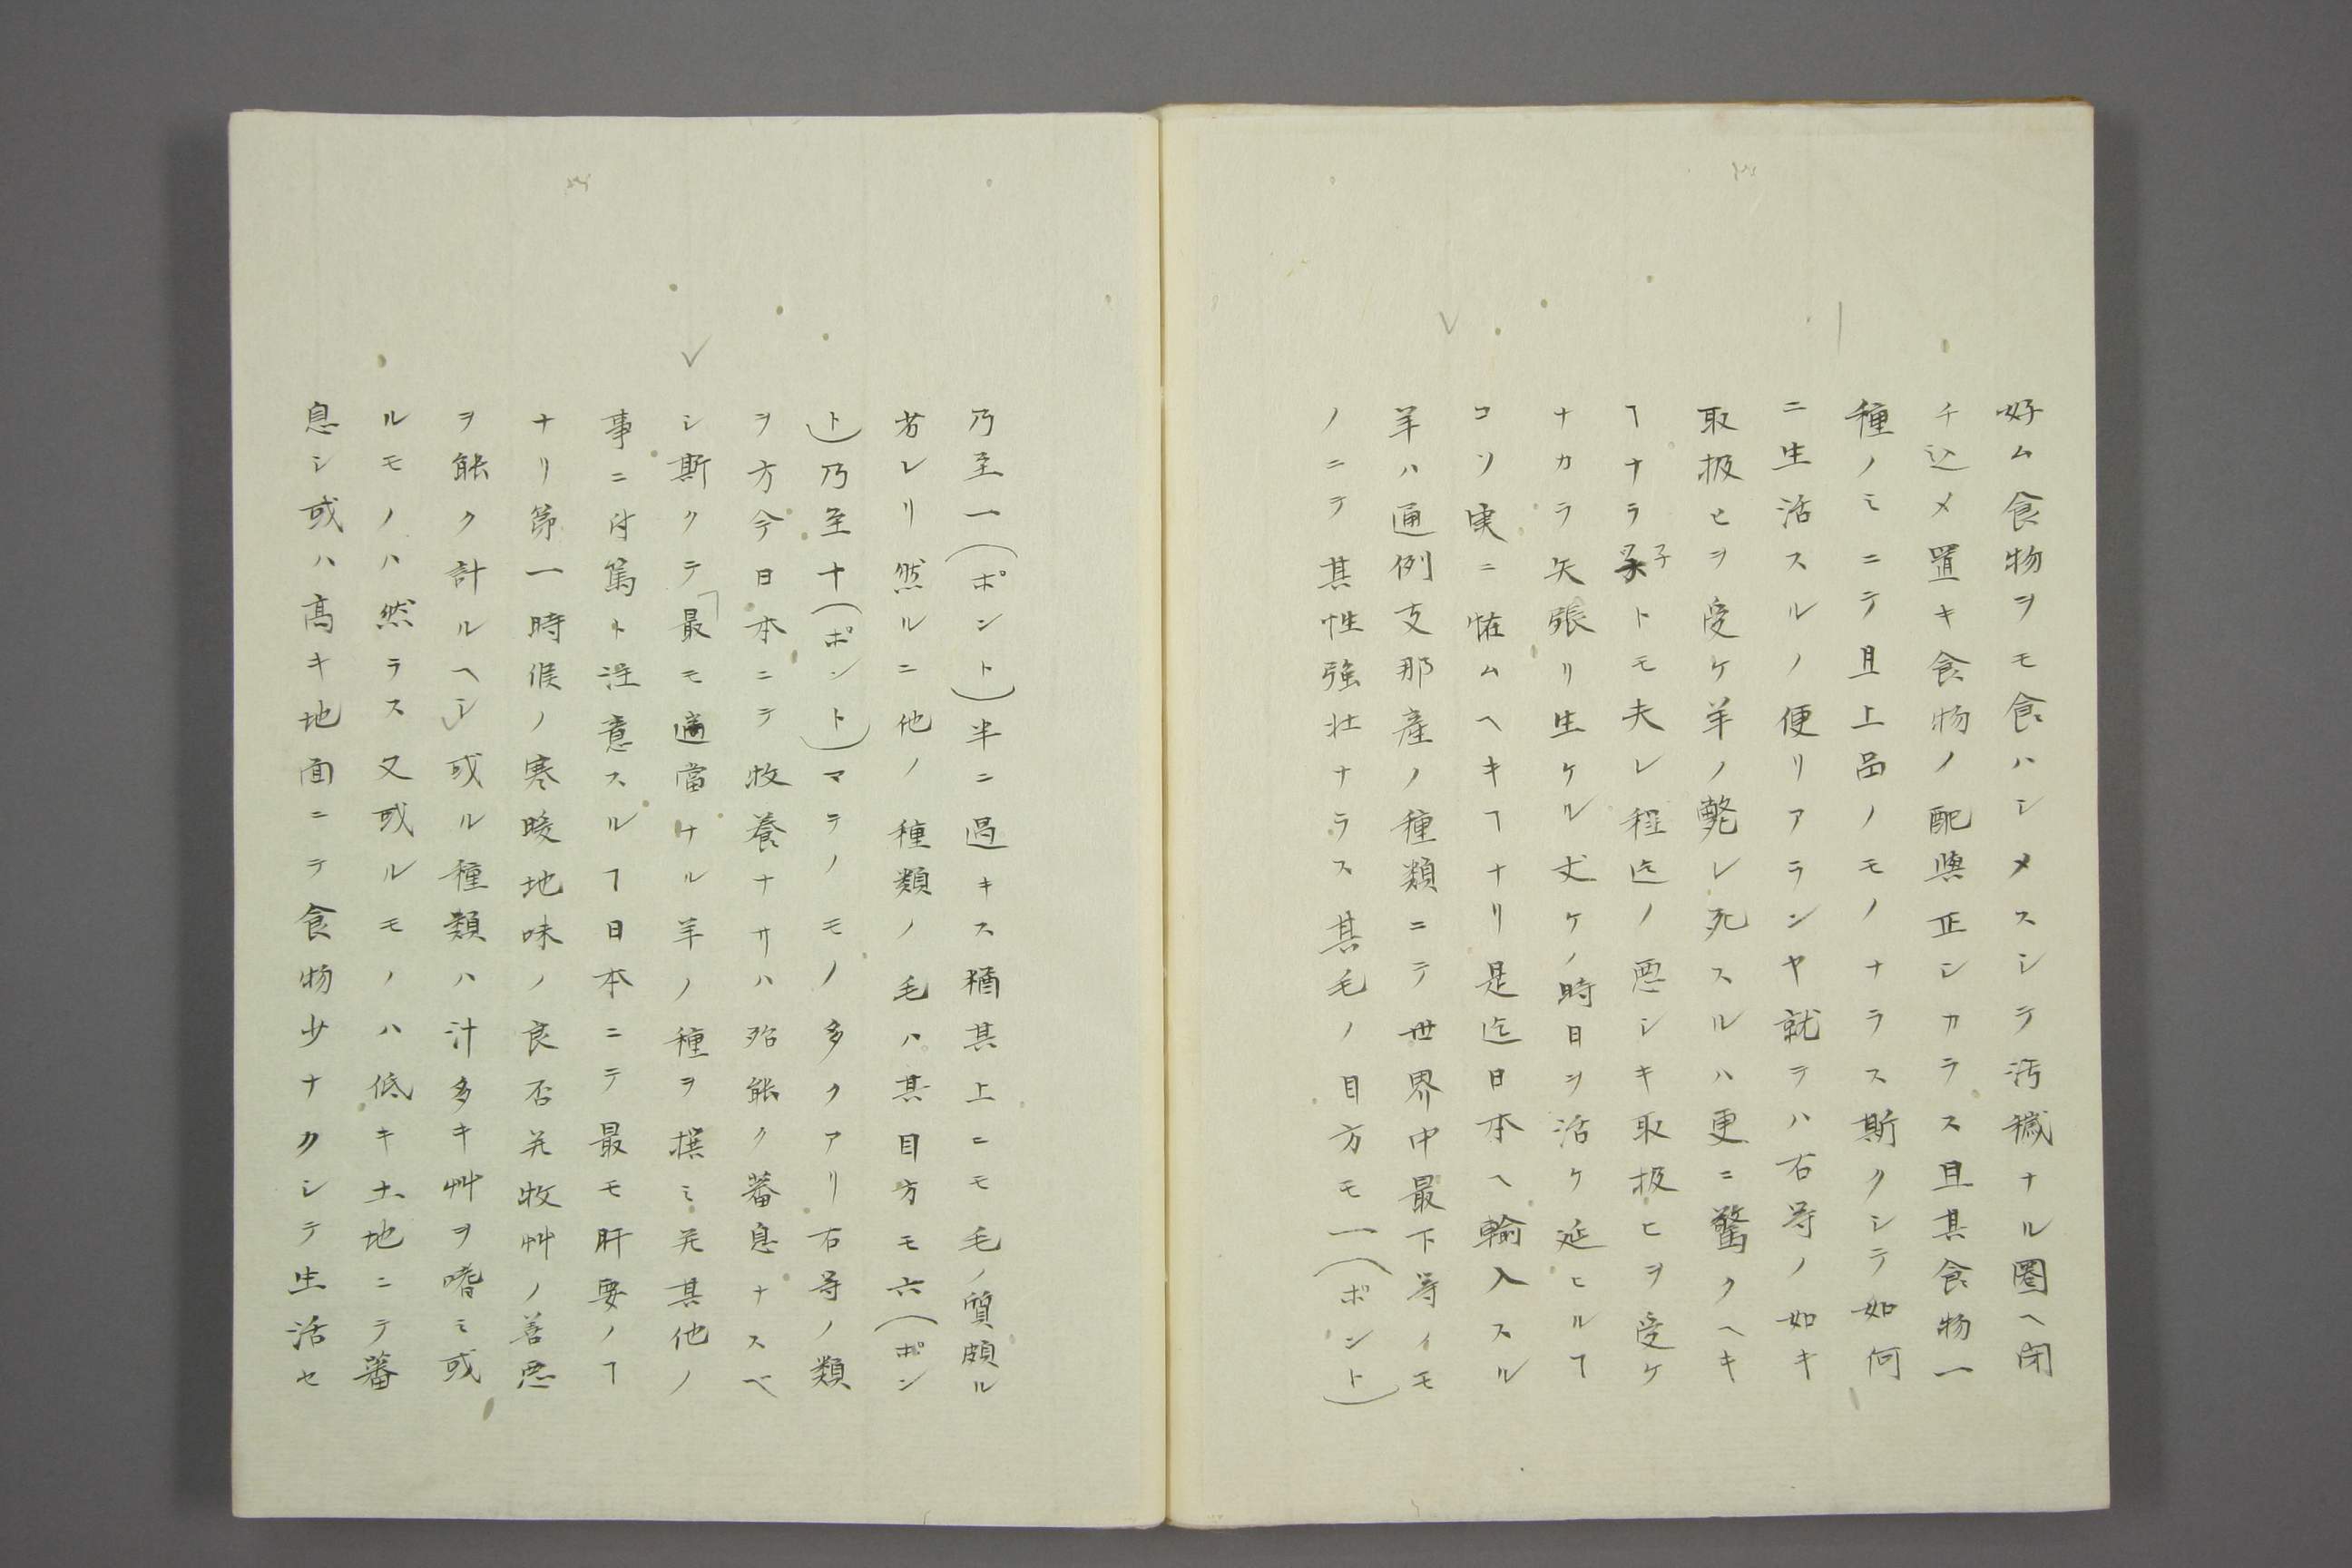 好ム食物ヲモ食ハシメスシテ汚穢ナル圏ヘ閉
チ込メ置キ食物ノ配與正シカラス且其食物一
種ノミニテ且上品ノモノナラス斯クシテ如何
ニ生活スルノ便リアランヤ就テハ右等ノ如キ
取扱ヒヲ受ケ羊ノ斃レ死スルハ更ニ驚クヘキ
ヿナラ子トモ夫レ程迄ノ悪シキ取扱ヒヲ受ケ
ナカラ矢張リ生ケル丈ケノ時日ヲ活ケ延ヒルヿ
コソ実ニ恠ムヘキヿナリ是迄日本ヘ輸入スル
羊ハ通例支那産ノ種類ニテ世界中最下等イモ
ノニテ其性強壮ナラス其毛ノ目方モ一(ポント)
乃至一(ポント)半ニ過キス猶其上ニモ毛ノ質頗ル
劣レリ然ルニ他ノ種類ノ毛ハ其目方モ六(ポン
ト)乃至十(ポント)マテノモノ多クアリ右等ノ類
ヲ方今日本ニテ牧養ナサハ殆能ク蕃息ナスベ
シ斯クテ「最モ適當ナル羊ノ種ヲ撰ミ并其他ノ
事ニ付篤ト注意スルヿ日本ニテ最モ肝要ノヿ
ナリ第一時候ノ寒暖地味ノ良否并牧艸ノ善悪
ヲ能ク計ルヘシ或ル種類ハ汁多キ艸ヲ嗜ミ或
ルモノハ然ラス又或ルモノハ低キ土地ニテ蕃
息シ或ハ高キ地面ニテ食物少ナクシテ生活セ